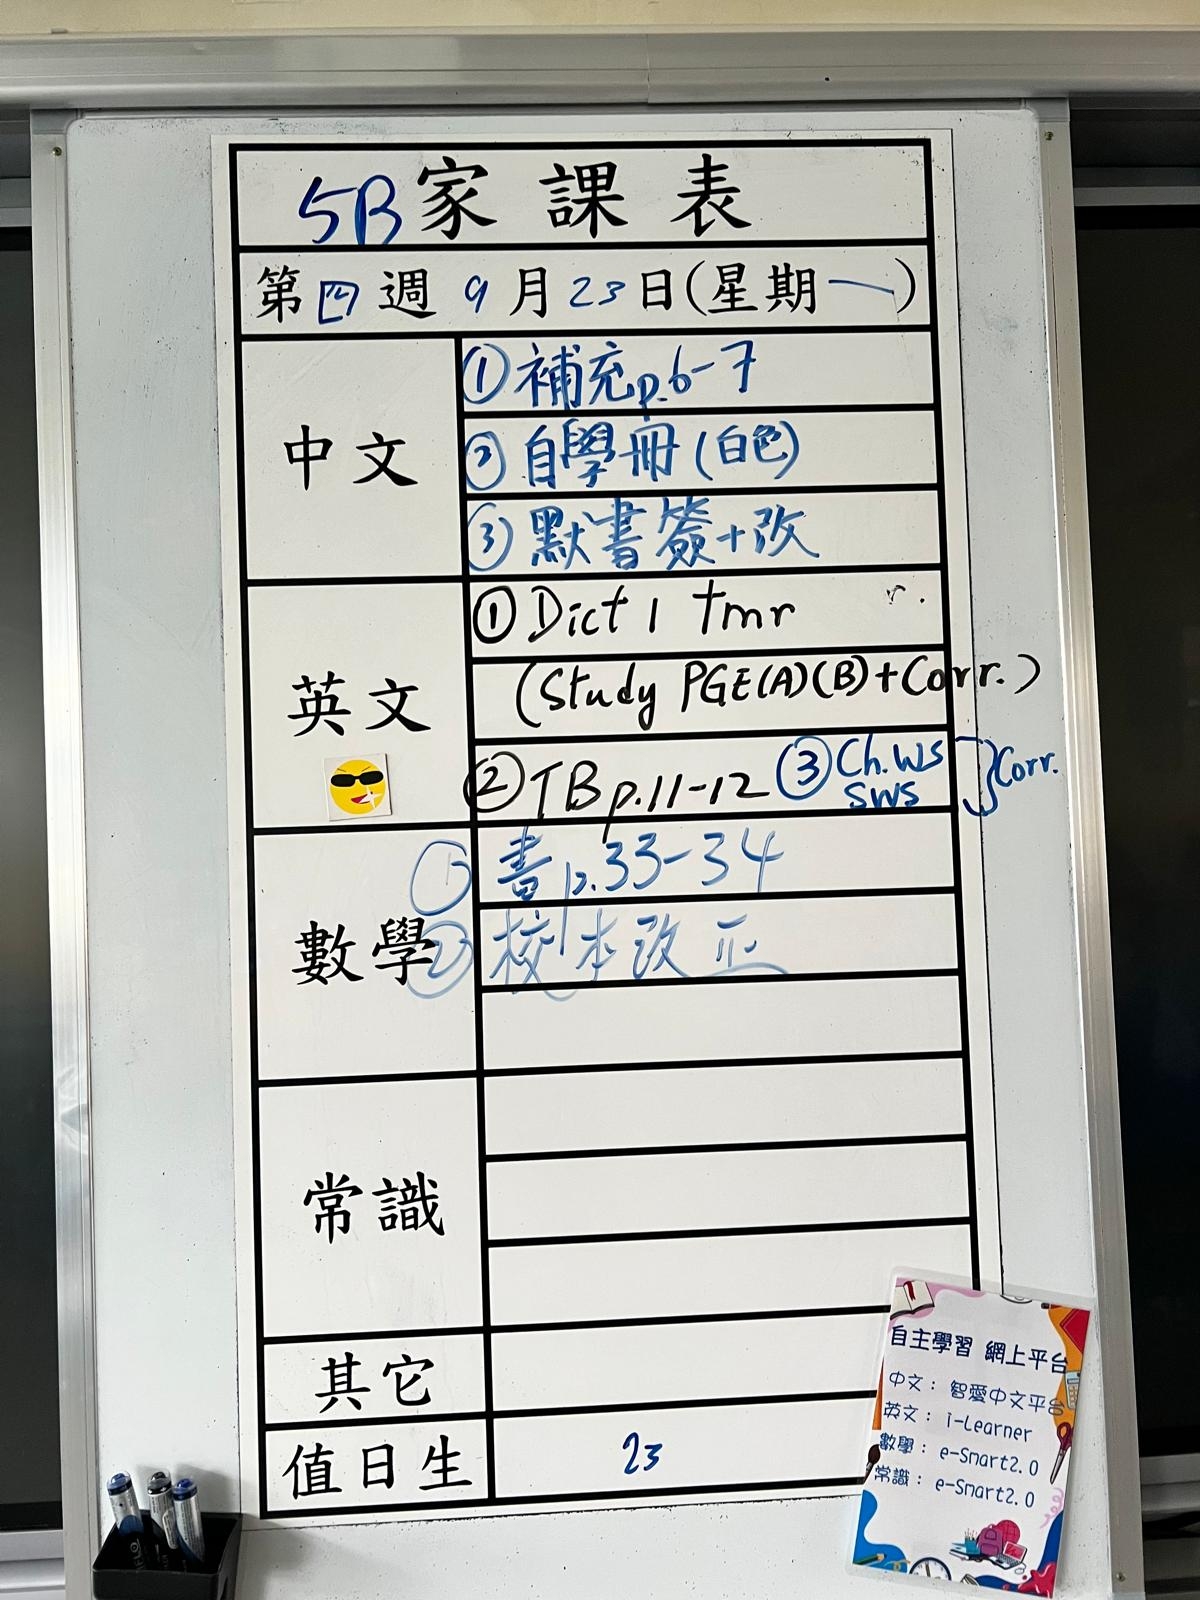 5B家課表
第四週 9月23日(星期一)
中文
①補充p.6-7
②自學冊(白色)
③默書簽+改
英文
①Dict 1 tmr
(Study PGE(A)(B)+Corr.)
②TB p.11-12 ③Ch.WS SWS }Corr.
數學
①書p.33-34
②校本改正
常識
其它
值日生 23
自主學習 網上平台
中文：智愛中文平台
英文：i-Learner
數學：e-Smart2.0
常識：e-Smart2.0